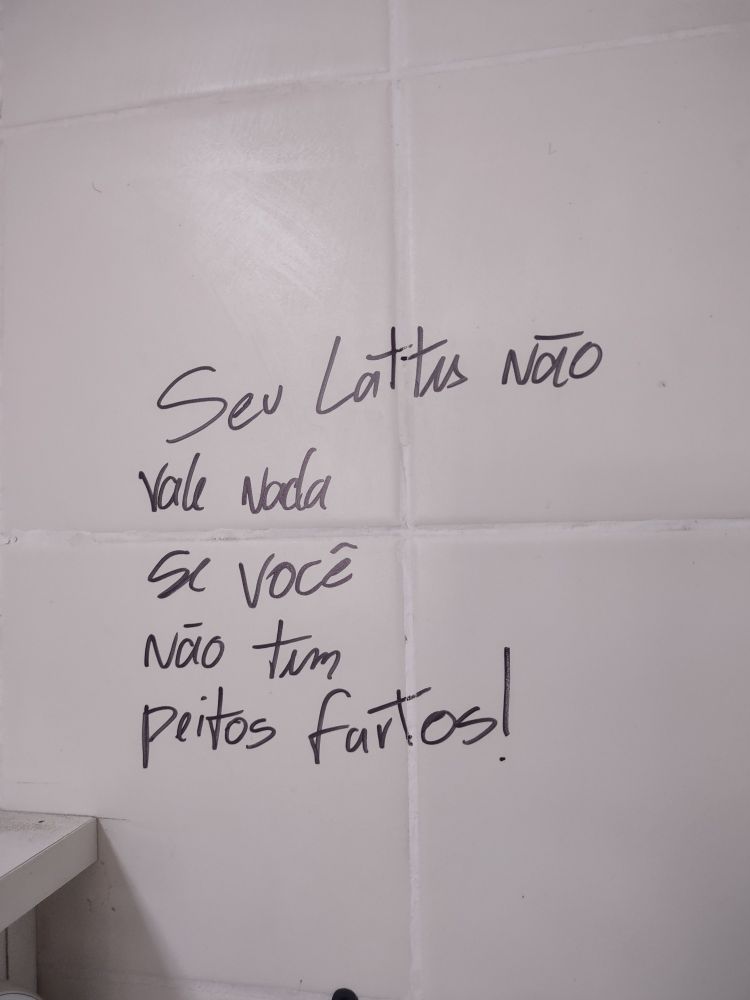 Seu Lattes não
vale nada
se você
não tem
peitos fartos!